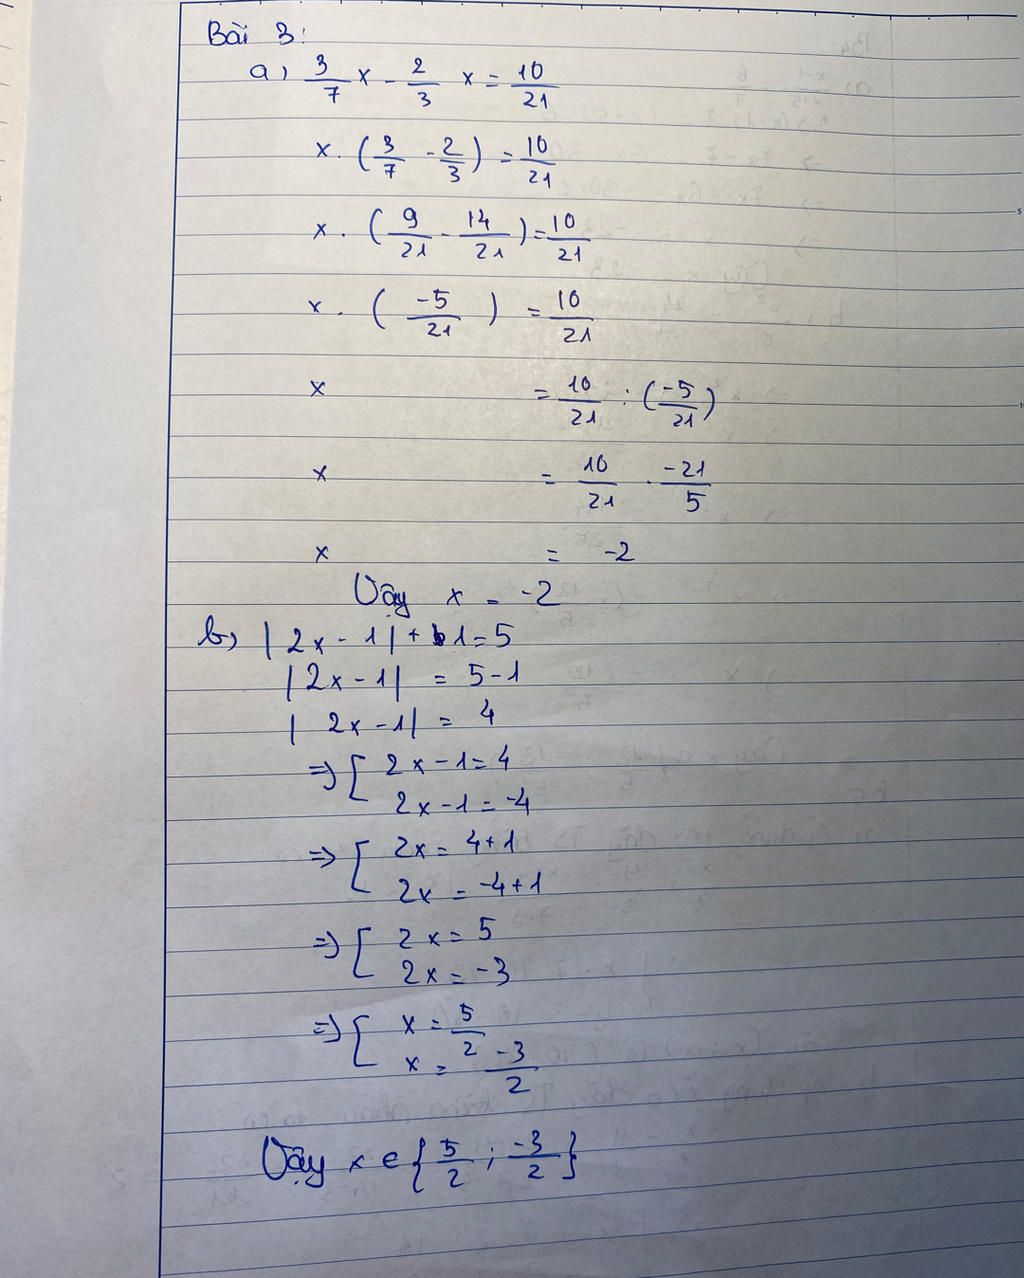 Bài 3:
a, 3/7 x - 2/3 x = 10/21
x. (3/7 - 2/3) = 10/21
x. (9/21 - 14/21) = 10/21
x. (-5/21) = 10/21
x = 10/21 : (-5/21)
x = 10/21 . -21/5
x = -2
Vậy x = -2
b, |2x - 1| + 1 = 5
|2x - 1| = 5 - 1
|2x - 1| = 4
=> [ 2x - 1 = 4
2x - 1 = -4
=> [ 2x = 4 + 1
2x = -4 + 1
=> [ 2x = 5
2x = -3
=> [ x = 5/2
x = -3/2
Vậy x ∈ {5/2 ; -3/2}